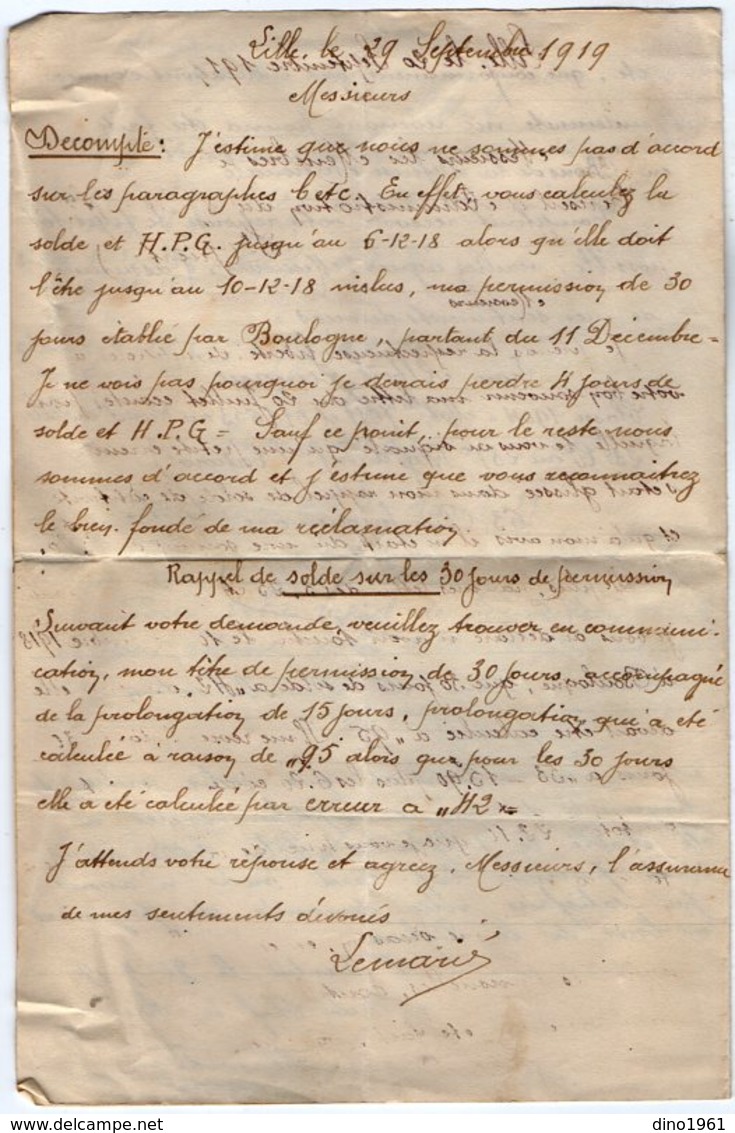 Lille, le 29 Septembre 1919
Messieurs
Décompte : J'estime que nous ne sommes pas d'accord
sur les paragraphes b et c. En effet, vous calculez la
solde et H.P.G. jusqu'au 6-12-18 alors qu'elle doit
l'être jusqu'au 10-12-18 inclus, ma permission de 30
jours établie par Boulogne, partant du 11 Décembre =
Je ne vois pas pourquoi je devrais perdre 4 jours de
solde et H.P.G = Sauf ce point, pour le reste nous
sommes d'accord et j'estime que vous reconnaitrez
le bien-fondé de ma réclamation.
Rappel de solde sur les 30 jours de permission
Suivant votre demande, veuillez trouver en communi-
cation, mon titre de permission de 30 jours, accompagné
de la prolongation de 15 jours, prolongation, qui a été
calculée à raison de „95 alors que pour les 30 jours
elle a été calculée par erreur à „42 =
J'attends votre réponse et agréez, Messieurs, l'assurance
de mes sentiments dévoués
Lemarié
dino1961